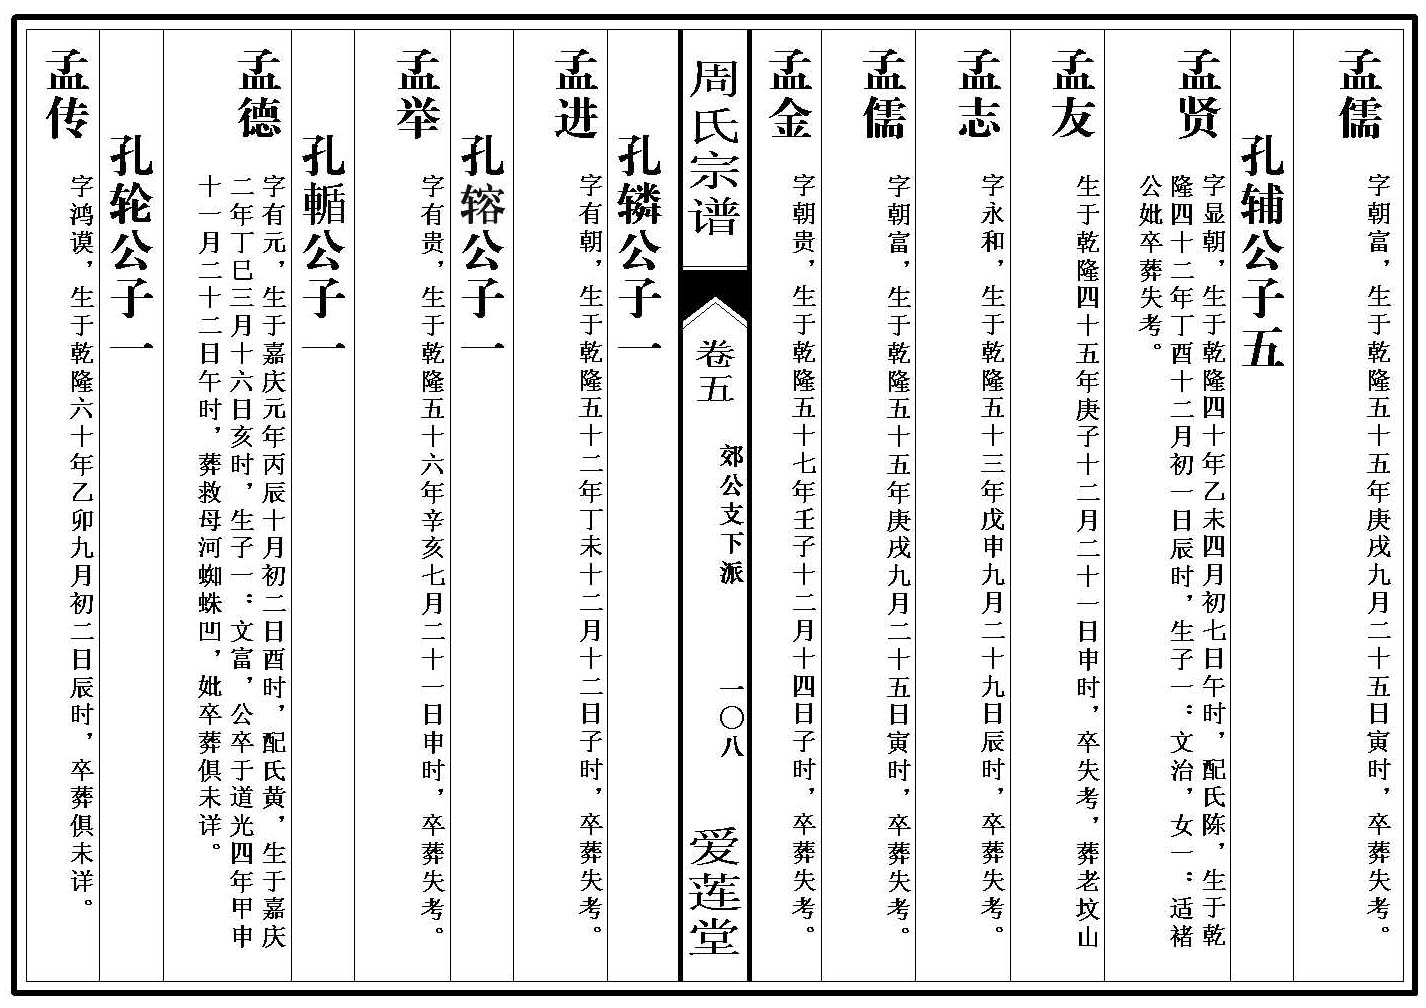 孟儒
字朝富，生于乾隆五十五年庚戌九月二十五日寅时，卒葬失考。
孔辅公子五
孟贤
字显朝，生于乾隆四十年乙未四月初七日午时，配氏陈，生于乾
隆四十二年丁酉十二月初一日辰时，生子一：文治，女一：适褚
公妣卒葬失考。
孟友
生于乾隆四十五年庚子十二月二十一日申时，卒失考，葬老坟山
孟志
字永和，生于乾隆五十三年戊申九月二十九日辰时，卒葬失考。
孟儒
字朝富，生于乾隆五十五年庚戌九月二十五日寅时，卒葬失考。
孟金
字朝贵，生于乾隆五十七年壬子十二月十四日子时，卒葬失考。
周氏宗谱
卷五
郊公支下派
一〇八
爱莲堂
孔辚公子一
孟进
字有朝，生于乾隆五十二年丁未十二月十二日子时，卒葬失考。
孔公子一
孟举
字有贵，生于乾隆五十六年辛亥七月二十一日申时，卒葬失考。
孔輴公子一
孟德
字有元，生于嘉庆元年丙辰十月初二日酉时，配氏黄，生于嘉庆
二年丁巳三月十六日亥时，生子一：文富，公卒于道光四年甲申
十一月二十二日午时，葬救母河蜘蛛凹，妣卒葬俱未详。
孔轮公子一
孟传
字鸿谟，生于乾隆六十年乙卯九月初二日辰时，卒葬俱未详。